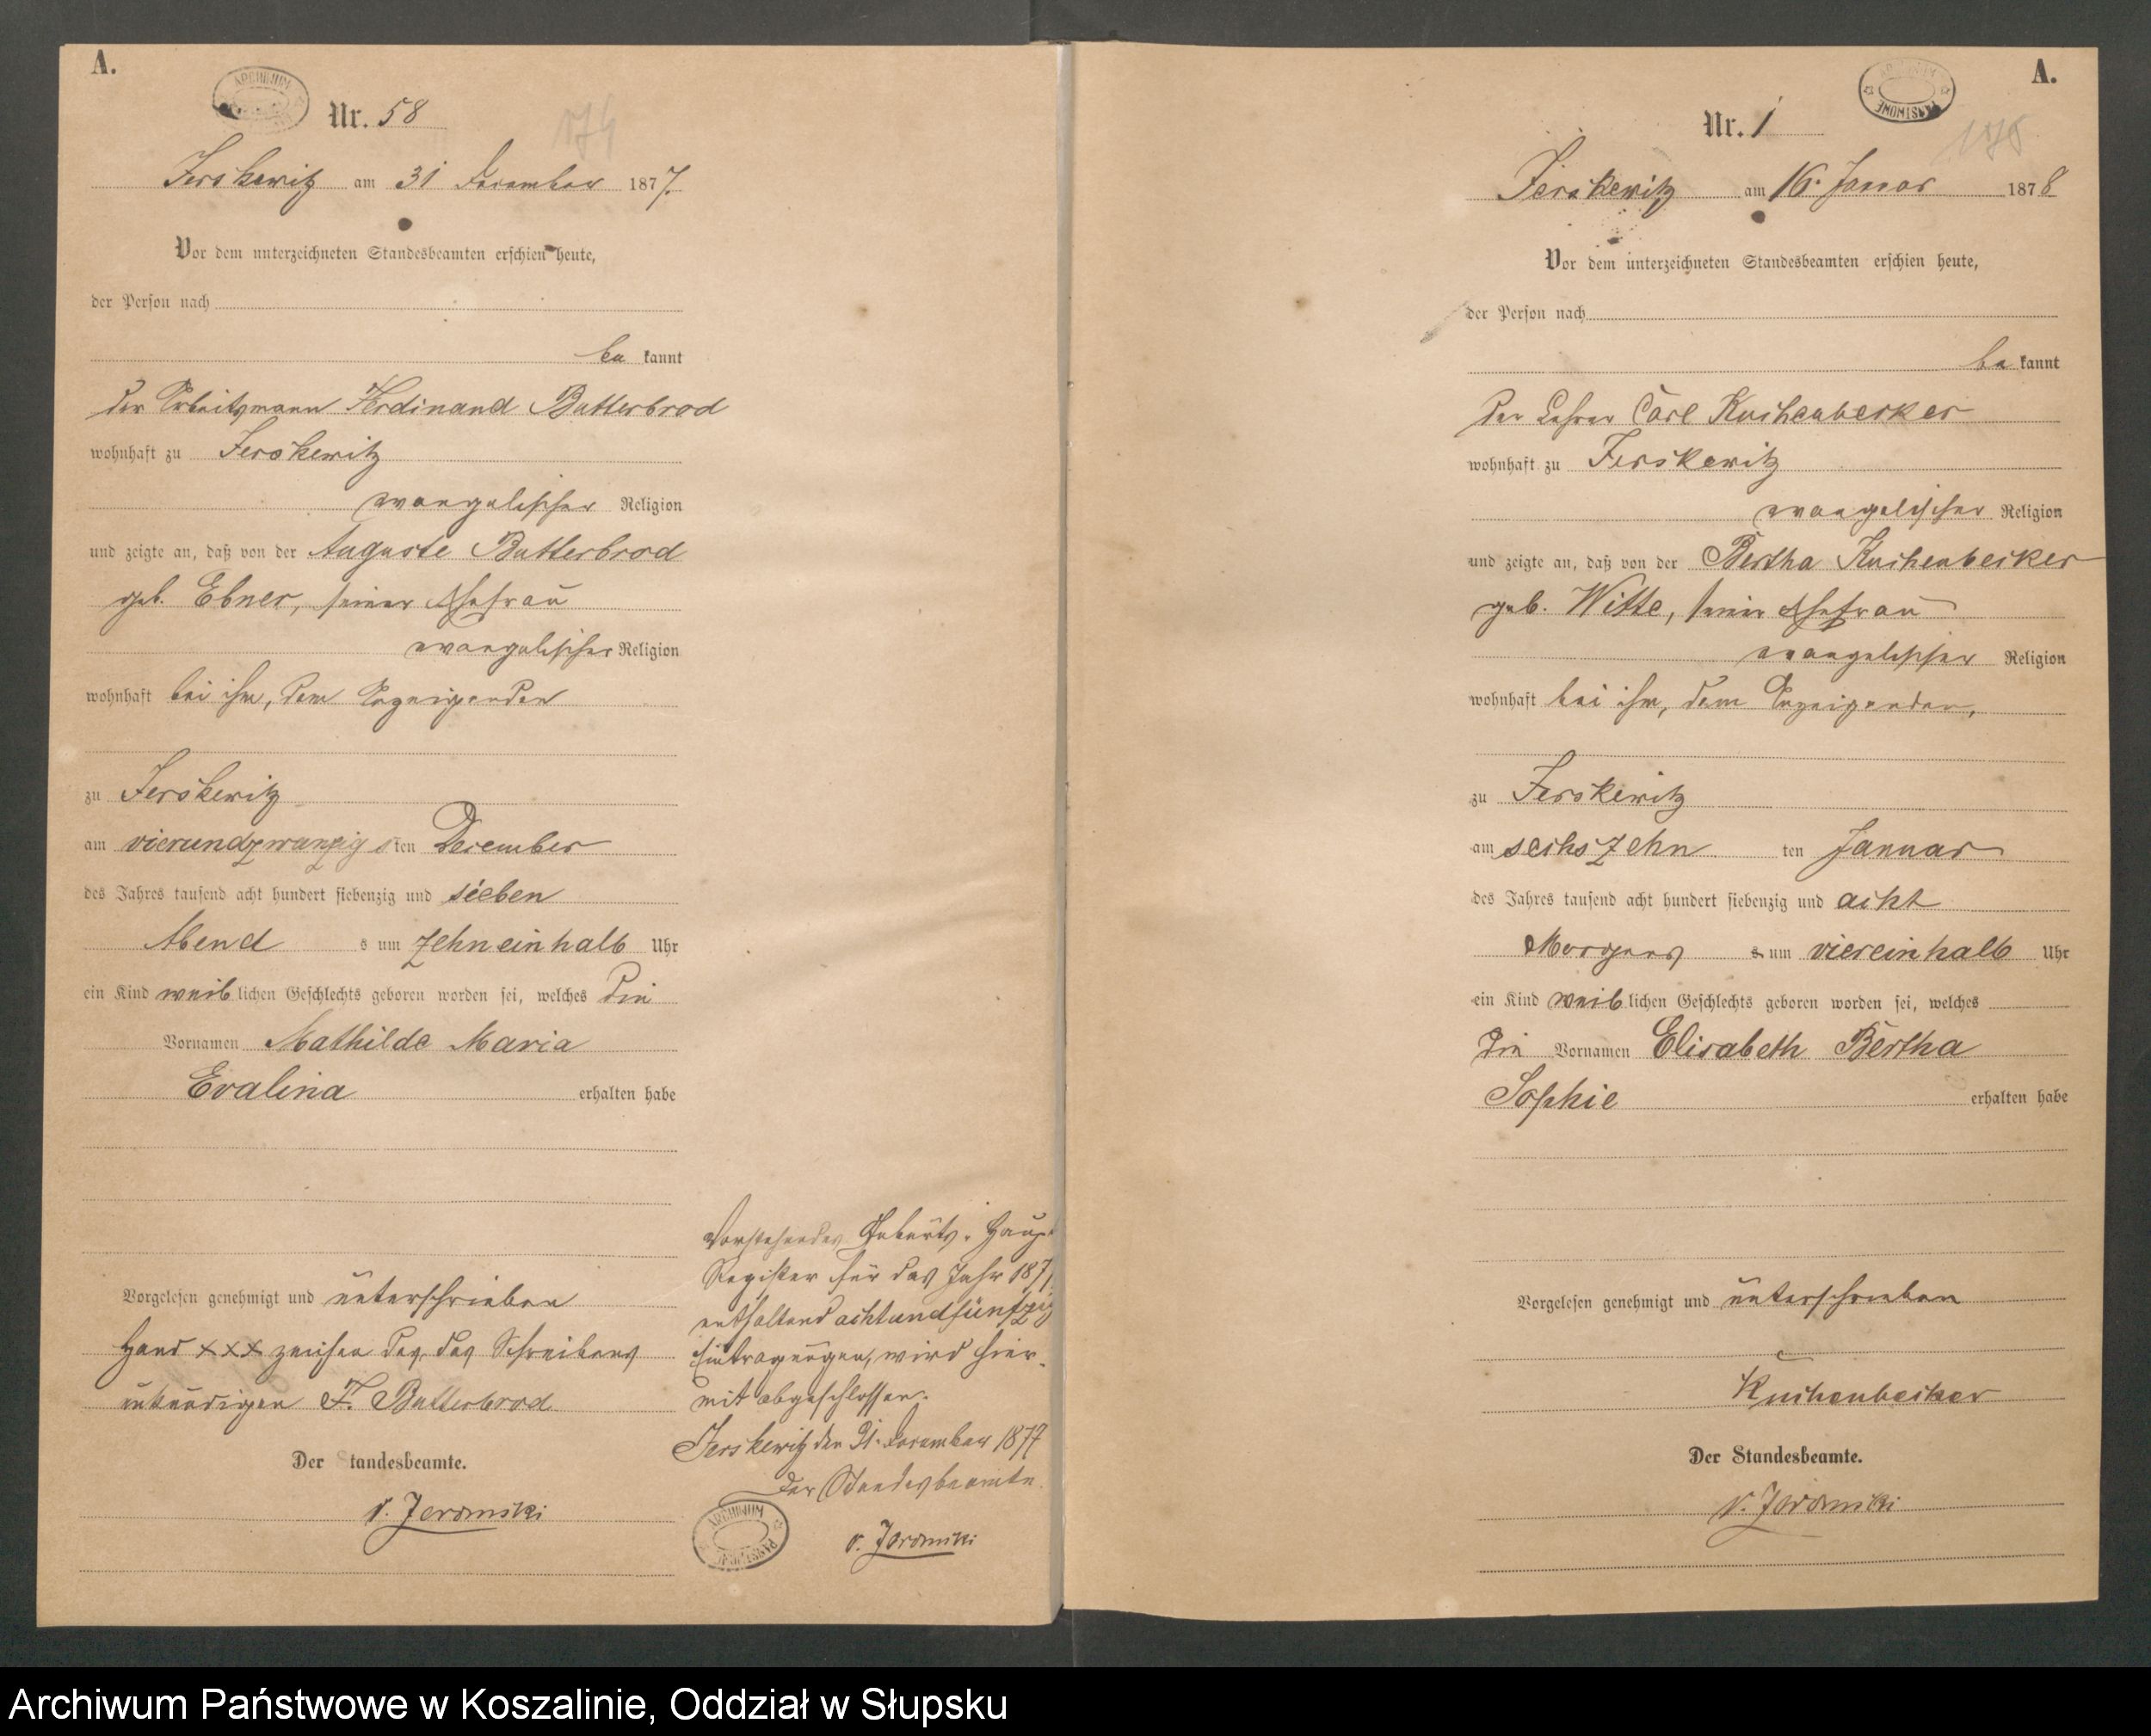 A.
ARCHIWUM
Nr. 58
174
Jerskewitz am 31 December 1877.
Vor dem unterzeichneten Standesbeamten erschien heute,
der Person nach
be kannt
der Arbeitsmann Ferdinand Butterbrod
wohnhaft zu Jerskewitz
evangelischer Religion
und zeigte an, daß von der Auguste Butterbrod
geb. Ebner, seiner Ehefrau
evangelischer Religion
wohnhaft bei ihm, dem Anzeigenden
zu Jerskewitz
am vierundzwanzigsten December
des Jahres tausend acht hundert siebenzig und sieben
Abend s um zehneinhalb Uhr
ein Kind weiblichen Geschlechts geboren worden sei, welches die
Vornamen Mathilde Maria
Evalina erhalten habe
Vorgelesen genehmigt und unterschrieben
Hand xxx zeichen des, des Schreibens
unkundigen F. Butterbrod
Der tandesbeamte.
v. Jeromski
Vorstehendes Geburts-Haupt
Register für das Jahr 1877,
enthaltend achtundfünfzig
Eintragungen, wird hier-
mit abgeschlossen.
Jerskewitz den 31. December 1877
Der Standesbeamte.
v. Jeromski
ARCHIWUM PAŃSTWOWE
A.
ARCHIWUM PAŃSTWOWE
Nr. 1
175
Jerskewitz am 16. Januar 1878
Vor dem unterzeichneten Standesbeamten erschien heute,
der Person nach
be kannt
der Lehrer Carl Kuchenbecker
wohnhaft zu Jerskewitz
evangelischer Religion
und zeigte an, daß von der Bertha Kuchenbecker
geb. Witte, seiner Ehefrau
evangelischer Religion
wohnhaft bei ihm, dem Anzeigenden,
zu Jerskewitz
am sechszehn ten Januar
des Jahres tausend acht hundert siebenzig und acht
Morgens s um viereinhalb Uhr
ein Kind weiblichen Geschlechts geboren worden sei, welches
die Vornamen Elisabeth Bertha
Sophie erhalten habe
Vorgelesen genehmigt und unterschrieben
Kuchenbecker
Der Standesbeamte.
v. Jeromski
Archiwum Państwowe w Koszalinie, Oddział w Słupsku